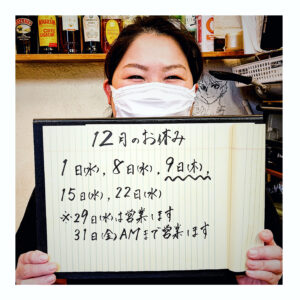 12月のお休み
1日(水), 8日(水), 9日(木),
15日(水), 22日(水)
※29日(水)は営業します
31日(金)AMまで営業します